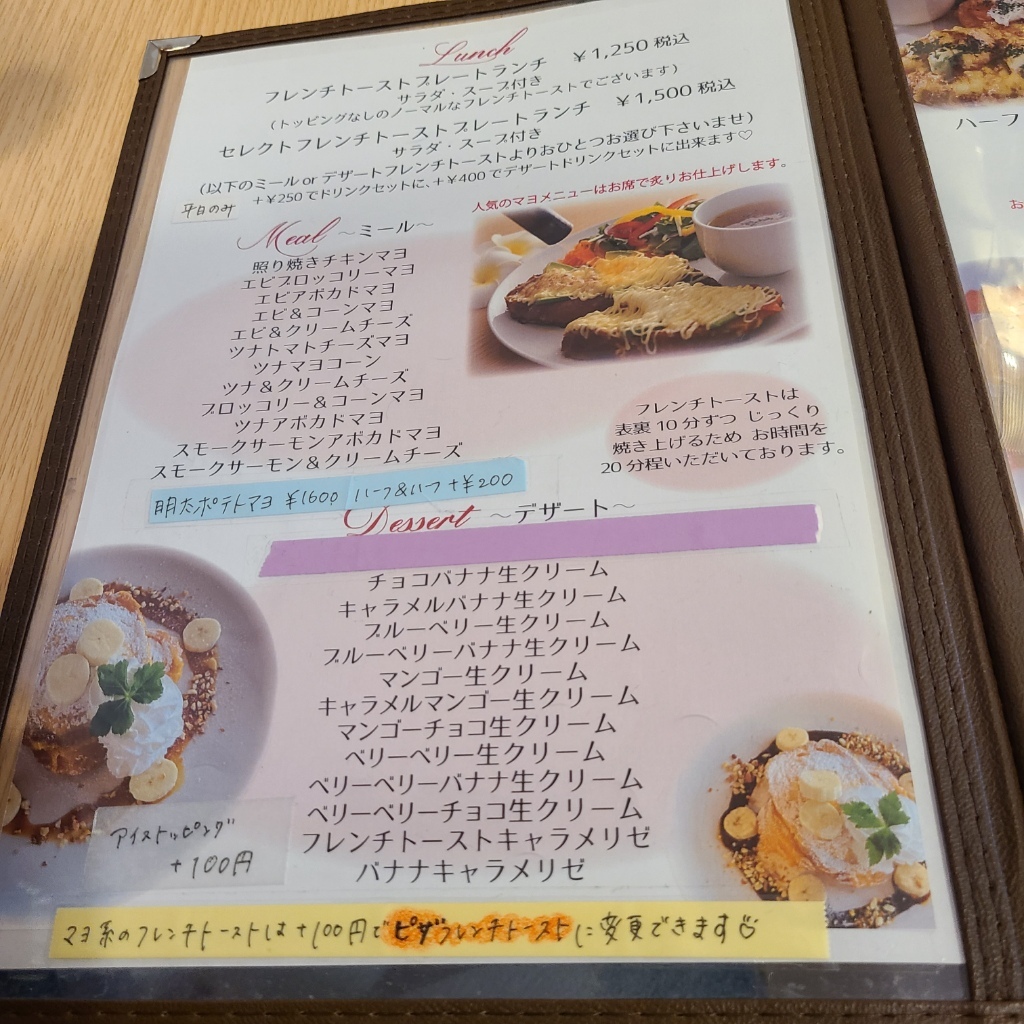 Lunch
フレンチトーストプレートランチ ￥1,250 税込
サラダ・スープ付き
(トッピングなしのノーマルなフレンチトーストでございます)
セレクトフレンチトーストプレートランチ ￥1,500 税込
サラダ・スープ付き
(以下のミール or デザートフレンチトーストよりおひとつお選び下さいませ)
+￥250でドリンクセットに、+￥400でデザートドリンクセットに出来ます♡
平日のみ
人気のマヨメニューはお席で炙りお仕上げします。
Meal ～ミール～
照り焼きチキンマヨ
エビブロッコリーマヨ
エビアボカドマヨ
エビ&コーンマヨ
エビ&クリームチーズ
ツナトマトチーズマヨ
ツナマヨコーン
ツナ&クリームチーズ
ブロッコリー&コーンマヨ
ツナアボカドマヨ
スモークサーモンアボカドマヨ
スモークサーモン&クリームチーズ
フレンチトーストは
表裏10分ずつ じっくり
焼き上げるため お時間を
20分程いただいております。
明太ポテトマヨ ￥1600 ハーフ&ハーフ +￥200
Dessert ～デザート～
チョコバナナ生クリーム
キャラメルバナナ生クリーム
ブルーベリー生クリーム
ブルーベリーバナナ生クリーム
マンゴー生クリーム
キャラメルマンゴー生クリーム
マンゴーチョコ生クリーム
ベリーベリー生クリーム
ベリーベリーバナナ生クリーム
ベリーベリーチョコ生クリーム
フレンチトーストキャラメリゼ
バナナキャラメリゼ
アイストッピング
+100円
マヨ系のフレンチトーストは+100円でピザフレンチトーストに変更できます
ハーフ
お